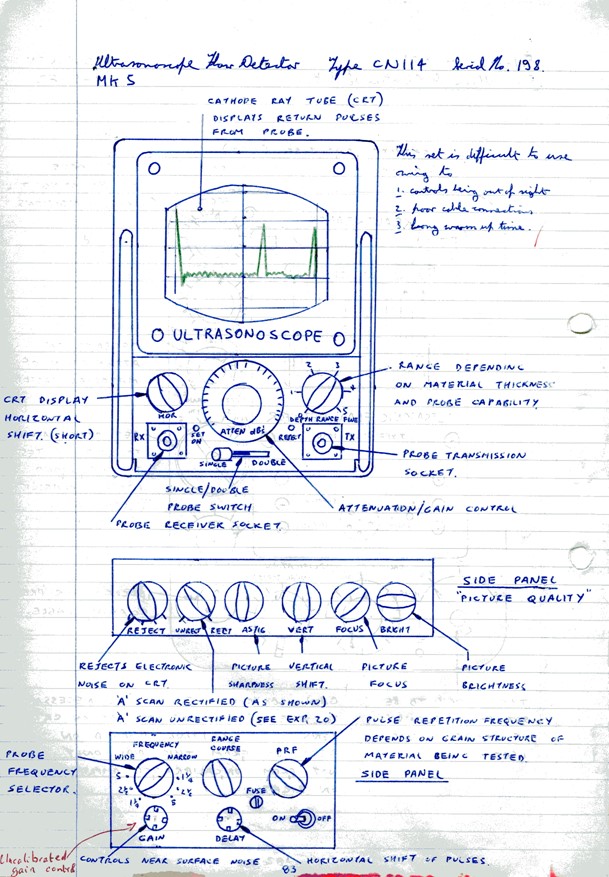 Ultrasonoscope Flaw Detector Type CN114 Serial No. 198.
MK 5
CATHODE RAY TUBE (CRT)
DISPLAYS RETURN PULSES
FROM PROBE.
This set is difficult to use
owing to
1. controls being out of sight
2. poor cable connections
3. Long warm up time.
ULTRASONOSCOPE
CRT DISPLAY
HORIZONTAL
SHIFT. (SHORT)
HOR
ATTEN dBs
1 2 3 4 5
DEPTH RANGE FINE
RANGE DEPENDING
ON MATERIAL THICKNESS
AND PROBE CAPABILITY.
RX
SET
ON
REJECT
TX
SINGLE DOUBLE
PROBE TRANSMISSION
SOCKET.
SINGLE/DOUBLE
PROBE SWITCH
PROBE RECEIVER SOCKET.
ATTENUATION/GAIN CONTROL
SIDE PANEL
"PICTURE QUALITY"
REJECT UNRECT RECT ASTIG VERT FOCUS BRIGHT
REJECTS ELECTRONIC
NOISE ON CRT.
PICTURE
SHARPNESS
VERTICAL
SHIFT.
PICTURE
FOCUS
PICTURE
BRIGHTNESS
'A' SCAN RECTIFIED (AS SHOWN)
'A' SCAN UNRECTIFIED (SEE EXP. 20)
PULSE REPETITION FREQUENCY
DEPENDS ON GRAIN STRUCTURE OF
MATERIAL BEING TESTED.
SIDE PANEL
PROBE
FREQUENCY
SELECTOR.
FREQUENCY
WIDE NARROW
5 1¼
2½ 2½
1¼ 5
RANGE
COURSE
PRF
FUSE
ON OFF
GAIN
DELAY
Uncalibrated
gain control
CONTROLS NEAR SURFACE NOISE
HORIZONTAL SHIFT OF PULSES.
83